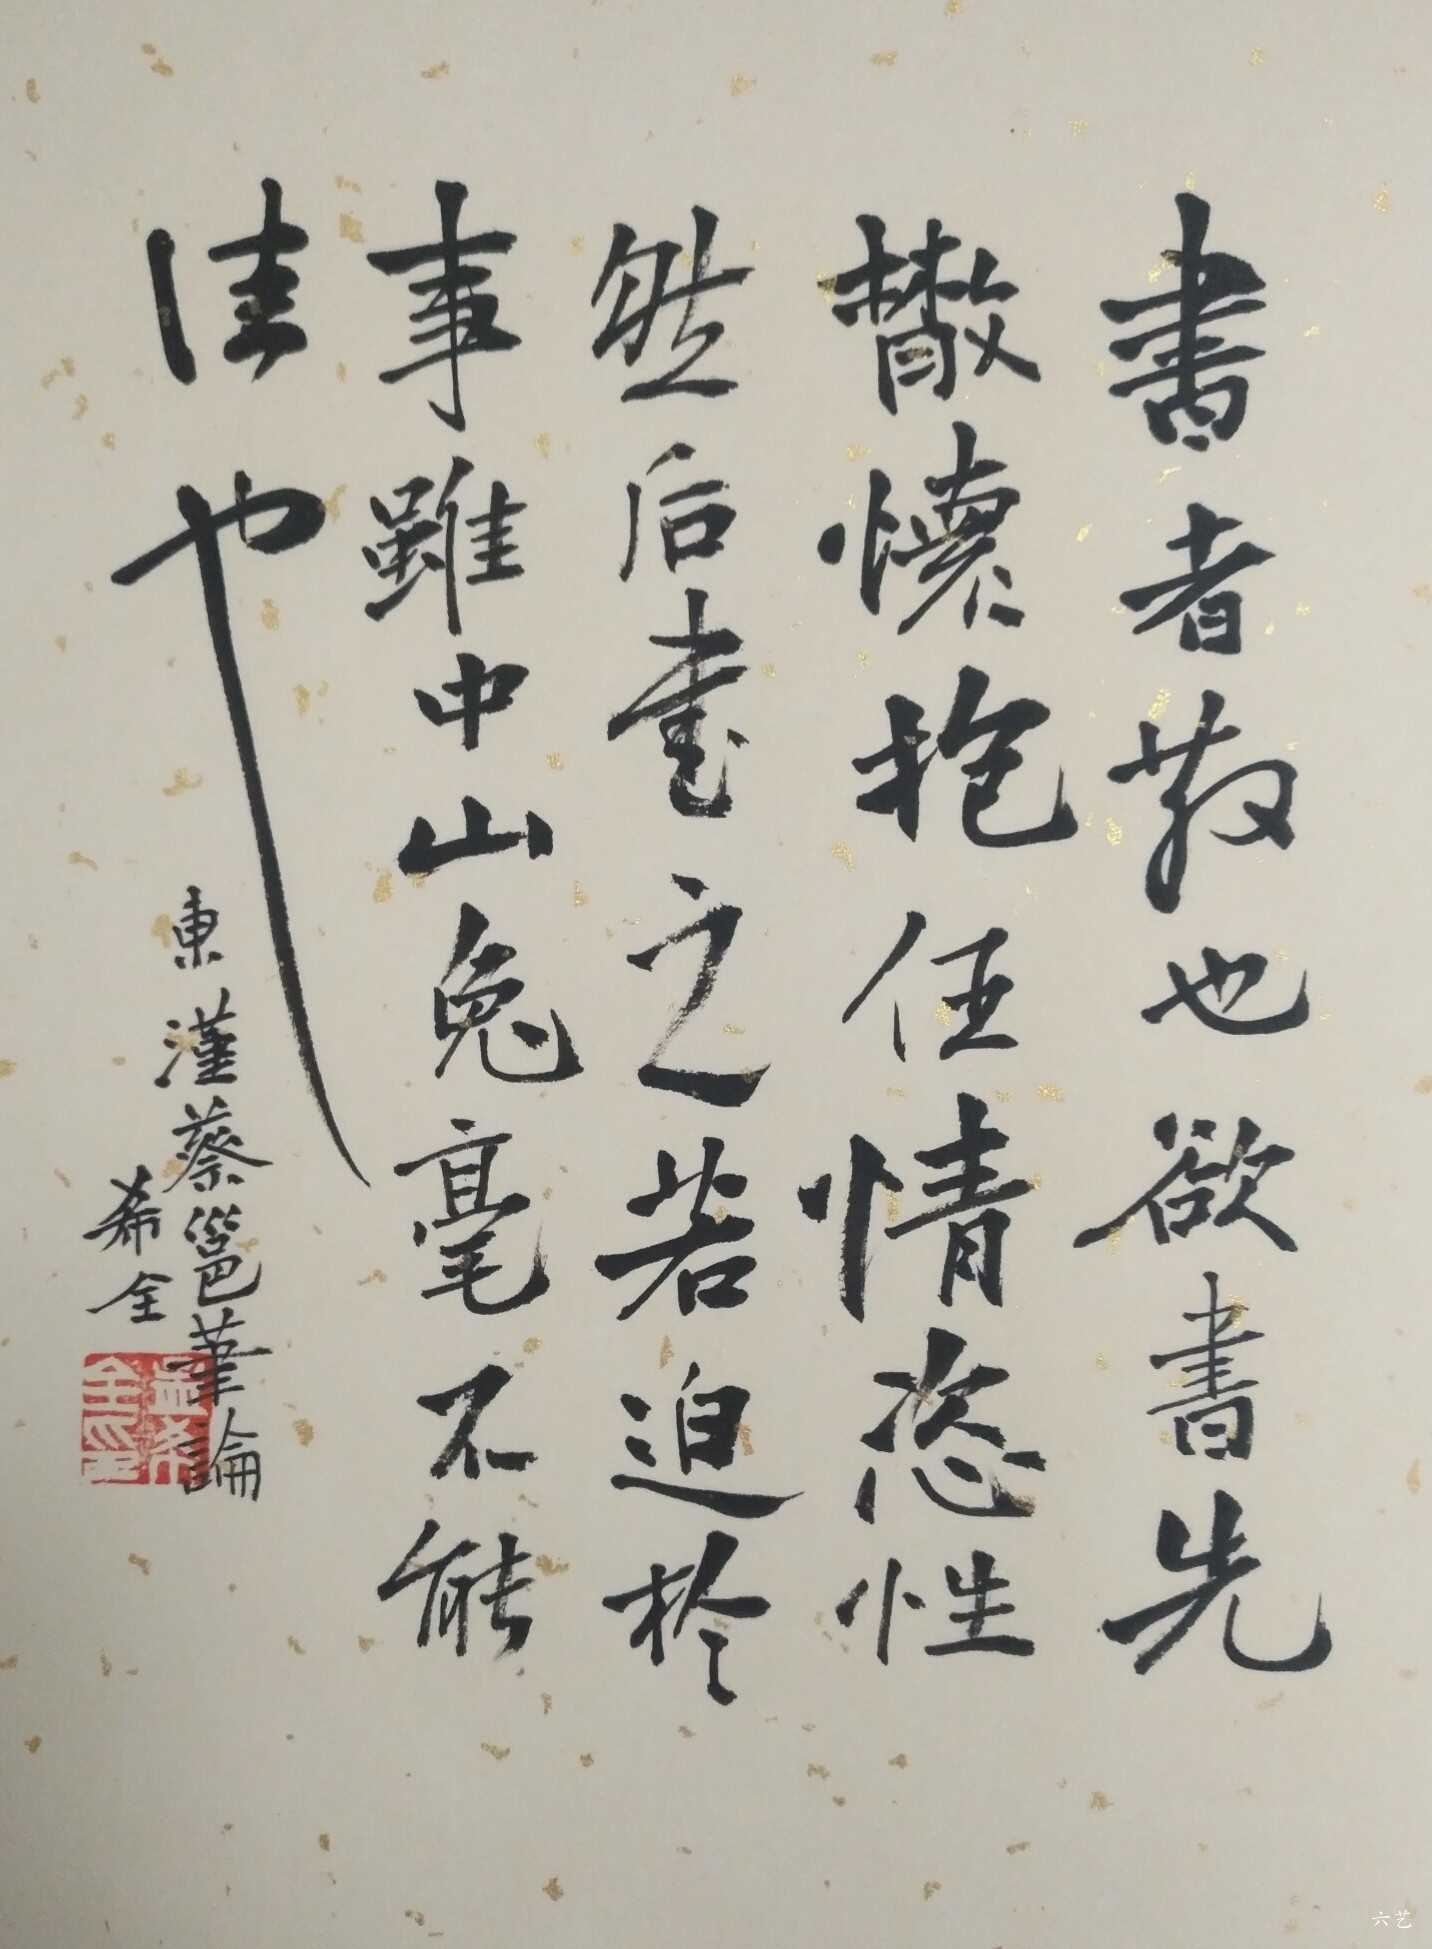 書者散也欲書先
散懷抱任情恣性
然后書之若迫於
事雖中山兔毫不能
佳也
東漢蔡邕筆論
希全
六艺